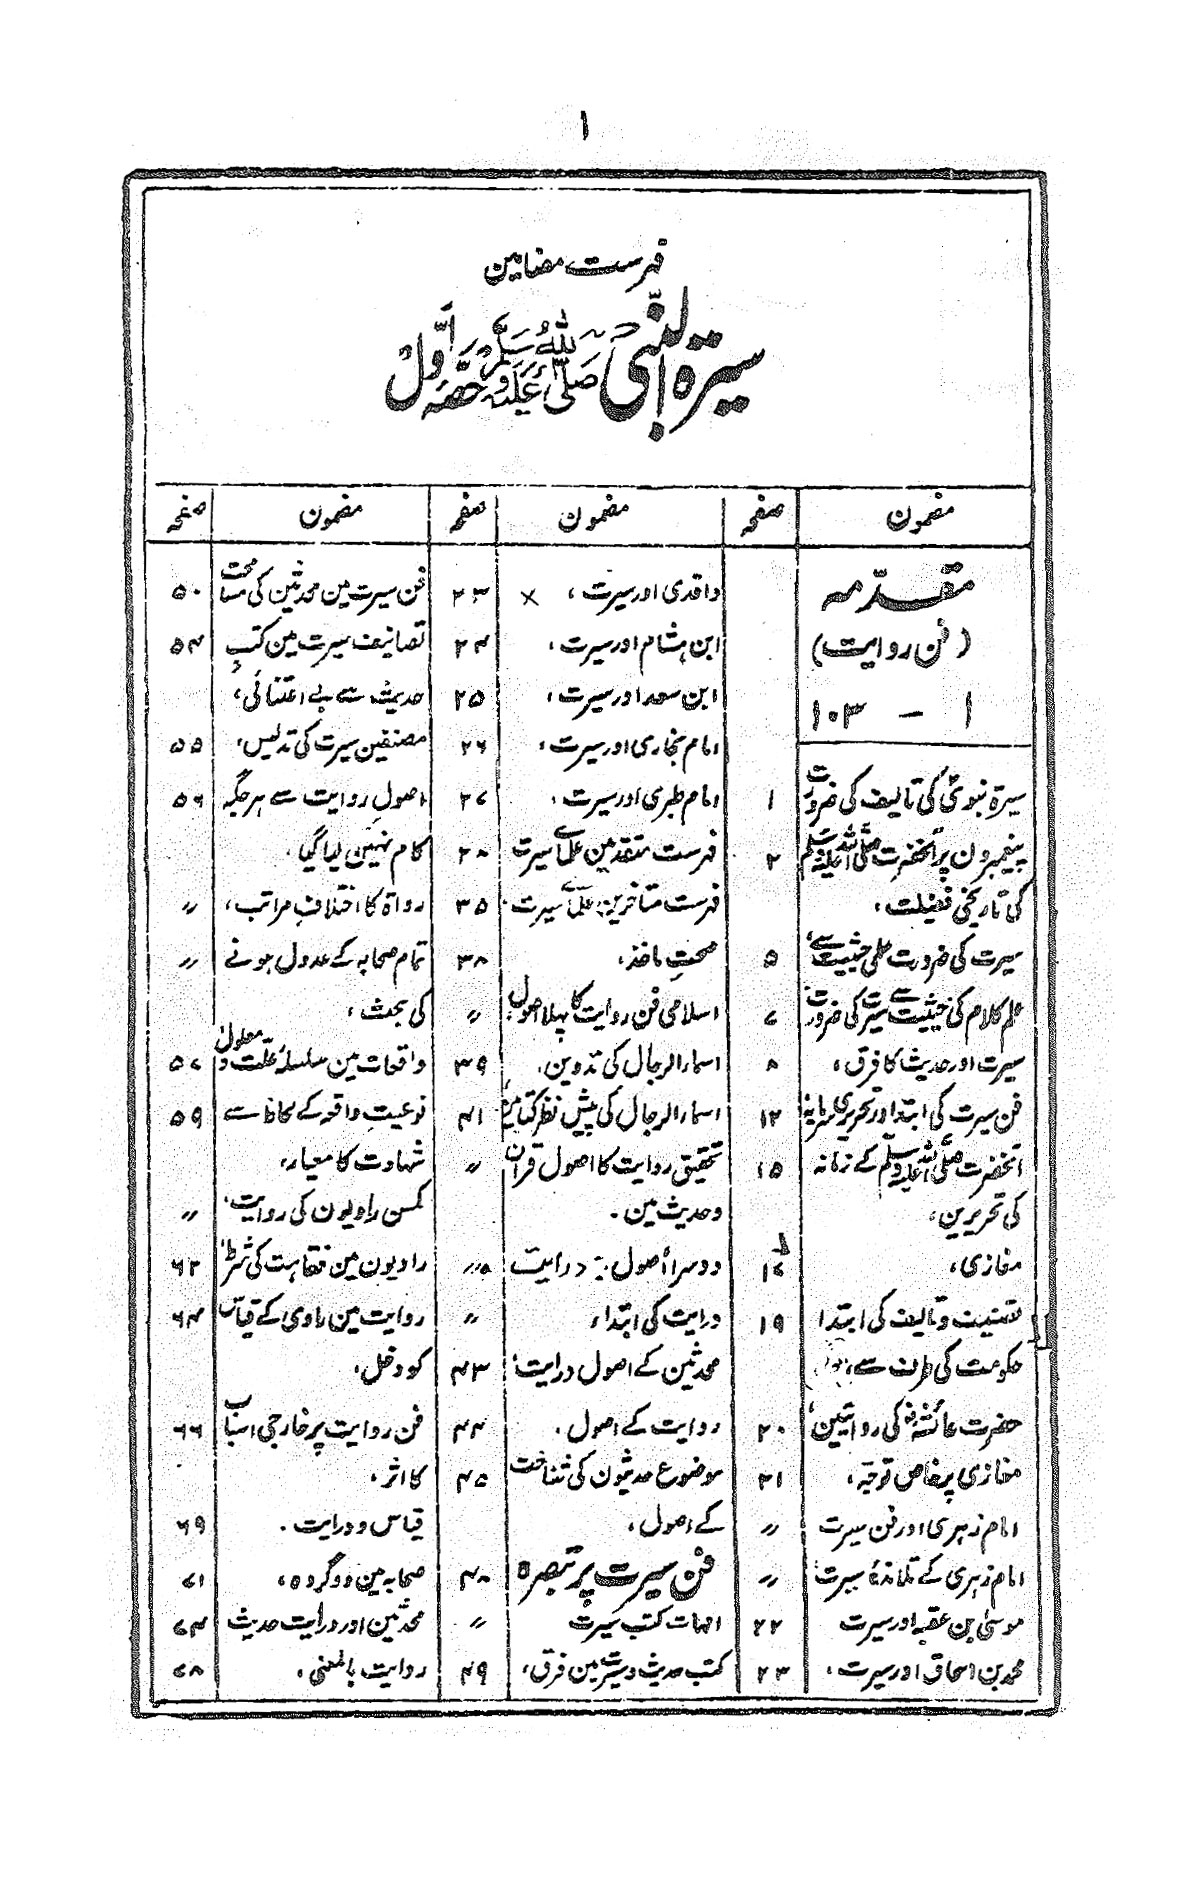 ۱
فہرست مضامین
سیرۃ النبی صلی اللہ علیہ وسلم حصہ اول
مضمون صفحہ
مقدمہ
(فن روایت)
۱ – ۱۰۳
سیرۃ نبوی کی تالیف کی ضرورت ۱
پیغمبرون پر آنحضرت صلی اللہ علیہ وسلم ۲
کی تاریخی فضیلت،
سیرت کی ضرورت علمی حیثیت سے، ۵
علم کلام کی حیثیت سے سیرت کی ضرورت، ۷
سیرت اور حدیث کا فرق، ۸
فن سیرت کی ابتدا اور تحریری سرمایہ ۱۲
آنحضرت صلی اللہ علیہ وسلم کے زمانہ ۱۵
کی تحریرین،
مغازی، ۱۷
تصنیف و تالیف کی ابتدا ۱۹
حکومت کی طرف سے،
حضرت عائشہؓ کی روایتین، ۲۰
مغازی پر خاص توجہ، ۲۱
امام زہری اور فن سیرت 〃
امام زہری کے تلامذۂ سیرت 〃
موسیٰ بن عقبہ اور سیرت ۲۲
محمد بن اسحاق اور سیرت، ۲۳
مضمون صفحہ
واقدی اور سیرت، × ۲۳
ابن ہشام اور سیرت، ۲۴
ابن سعد اور سیرت، ۲۵
امام بخاری اور سیرت، ۲۶
امام طبری اور سیرت، ۲۷
فہرست متقدمین علمائے سیرت ۲۸
فہرست متاخرین علمائے سیرت، ۳۵
صحتِ ماخذ، ۳۸
اسلامی فن روایت کا پہلا اصول، 〃
اسماء الرجال کی تدوین، ۳۹
اسماء الرجال کی پیش نظر کتابین ۴۱
تحقیق روایت کا اصول قرآن 〃
و حدیث مین،
دوسرا اصول:۔ درایت 〃
درایت کی ابتداء، 〃
محدثین کے اصول درایت، ۴۳
روایت کے اصول، ۴۴
موضوع حدیثون کی شناخت ۴۵
کے اصول،
فن سیرت پر تبصرہ ۴۸
امہات کتب سیرت 〃
کتب حدیث و سیرت مین فرق، ۴۹
مضمون صفحہ
فن سیرت مین محدثین کی مسامحت ۵۰
تصانیف سیرت مین کتبِ ۵۴
حدیث سے بے اعتنائی،
مصنفین سیرت کی تدلیس، ۵۵
اصولِ روایت سے ہر جگہ ۵۶
کام نہین لیا گیا،
رواۃ کا اختلافِ مراتب، 〃
تمام صحابہ کے عدول ہونے 〃
کی بحث،
واقعات مین سلسلۂ علت و معلول ۵۷
نوعیتِ واقعہ کے لحاظ سے ۵۹
شہادت کا معیار،
کمسن راویون کی روایت، 〃
راویون مین فقاہت کی شرط، ۶۲
روایت مین راوی کے قیاس ۶۴
کو دخل،
فن روایت پر خارجی اسباب ۶۶
کا اثر،
قیاس و درایت، ۶۹
صحابہ مین دو گروہ، ۷۱
محدثین اور درایت حدیث ۷۴
روایت بالمعنی، ۷۸